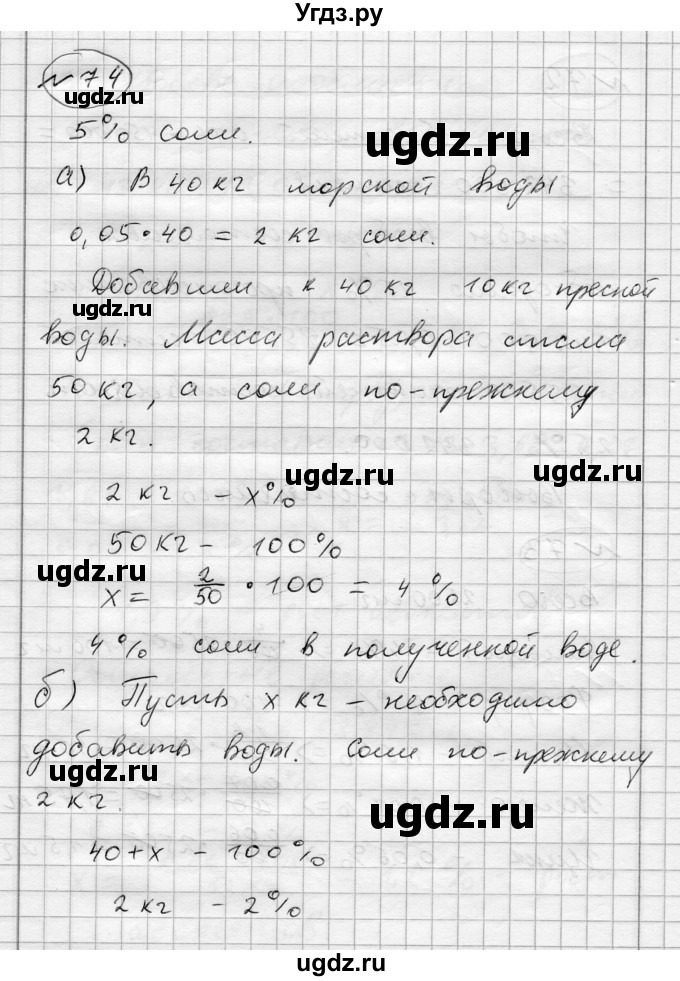 Угдз.ру
№ 74
ugdz.ru
5% соли.
ugdz.ru
а) В 40 кг морской воды
ugdz.ru
0,05•40 = 2 кг соли.
Добавили к 40 кг 10 кг пресной
воды. Масса раствора стала
50 кг, а соли по-прежнему
2 кг.
ugdz.ru
2 кг - x%
50 кг - 100%
ugdz.ru
x = 2/50 • 100 = 4%
ugdz.ru
4% соли в полученной воде.
б) Пусть x кг - необходимо
добавить воды. Соли по-прежнему
ugdz.ru
2 кг.
ugdz.ru
40+x - 100%
2 кг - 2%
ugdz.ru
ugdz.ru